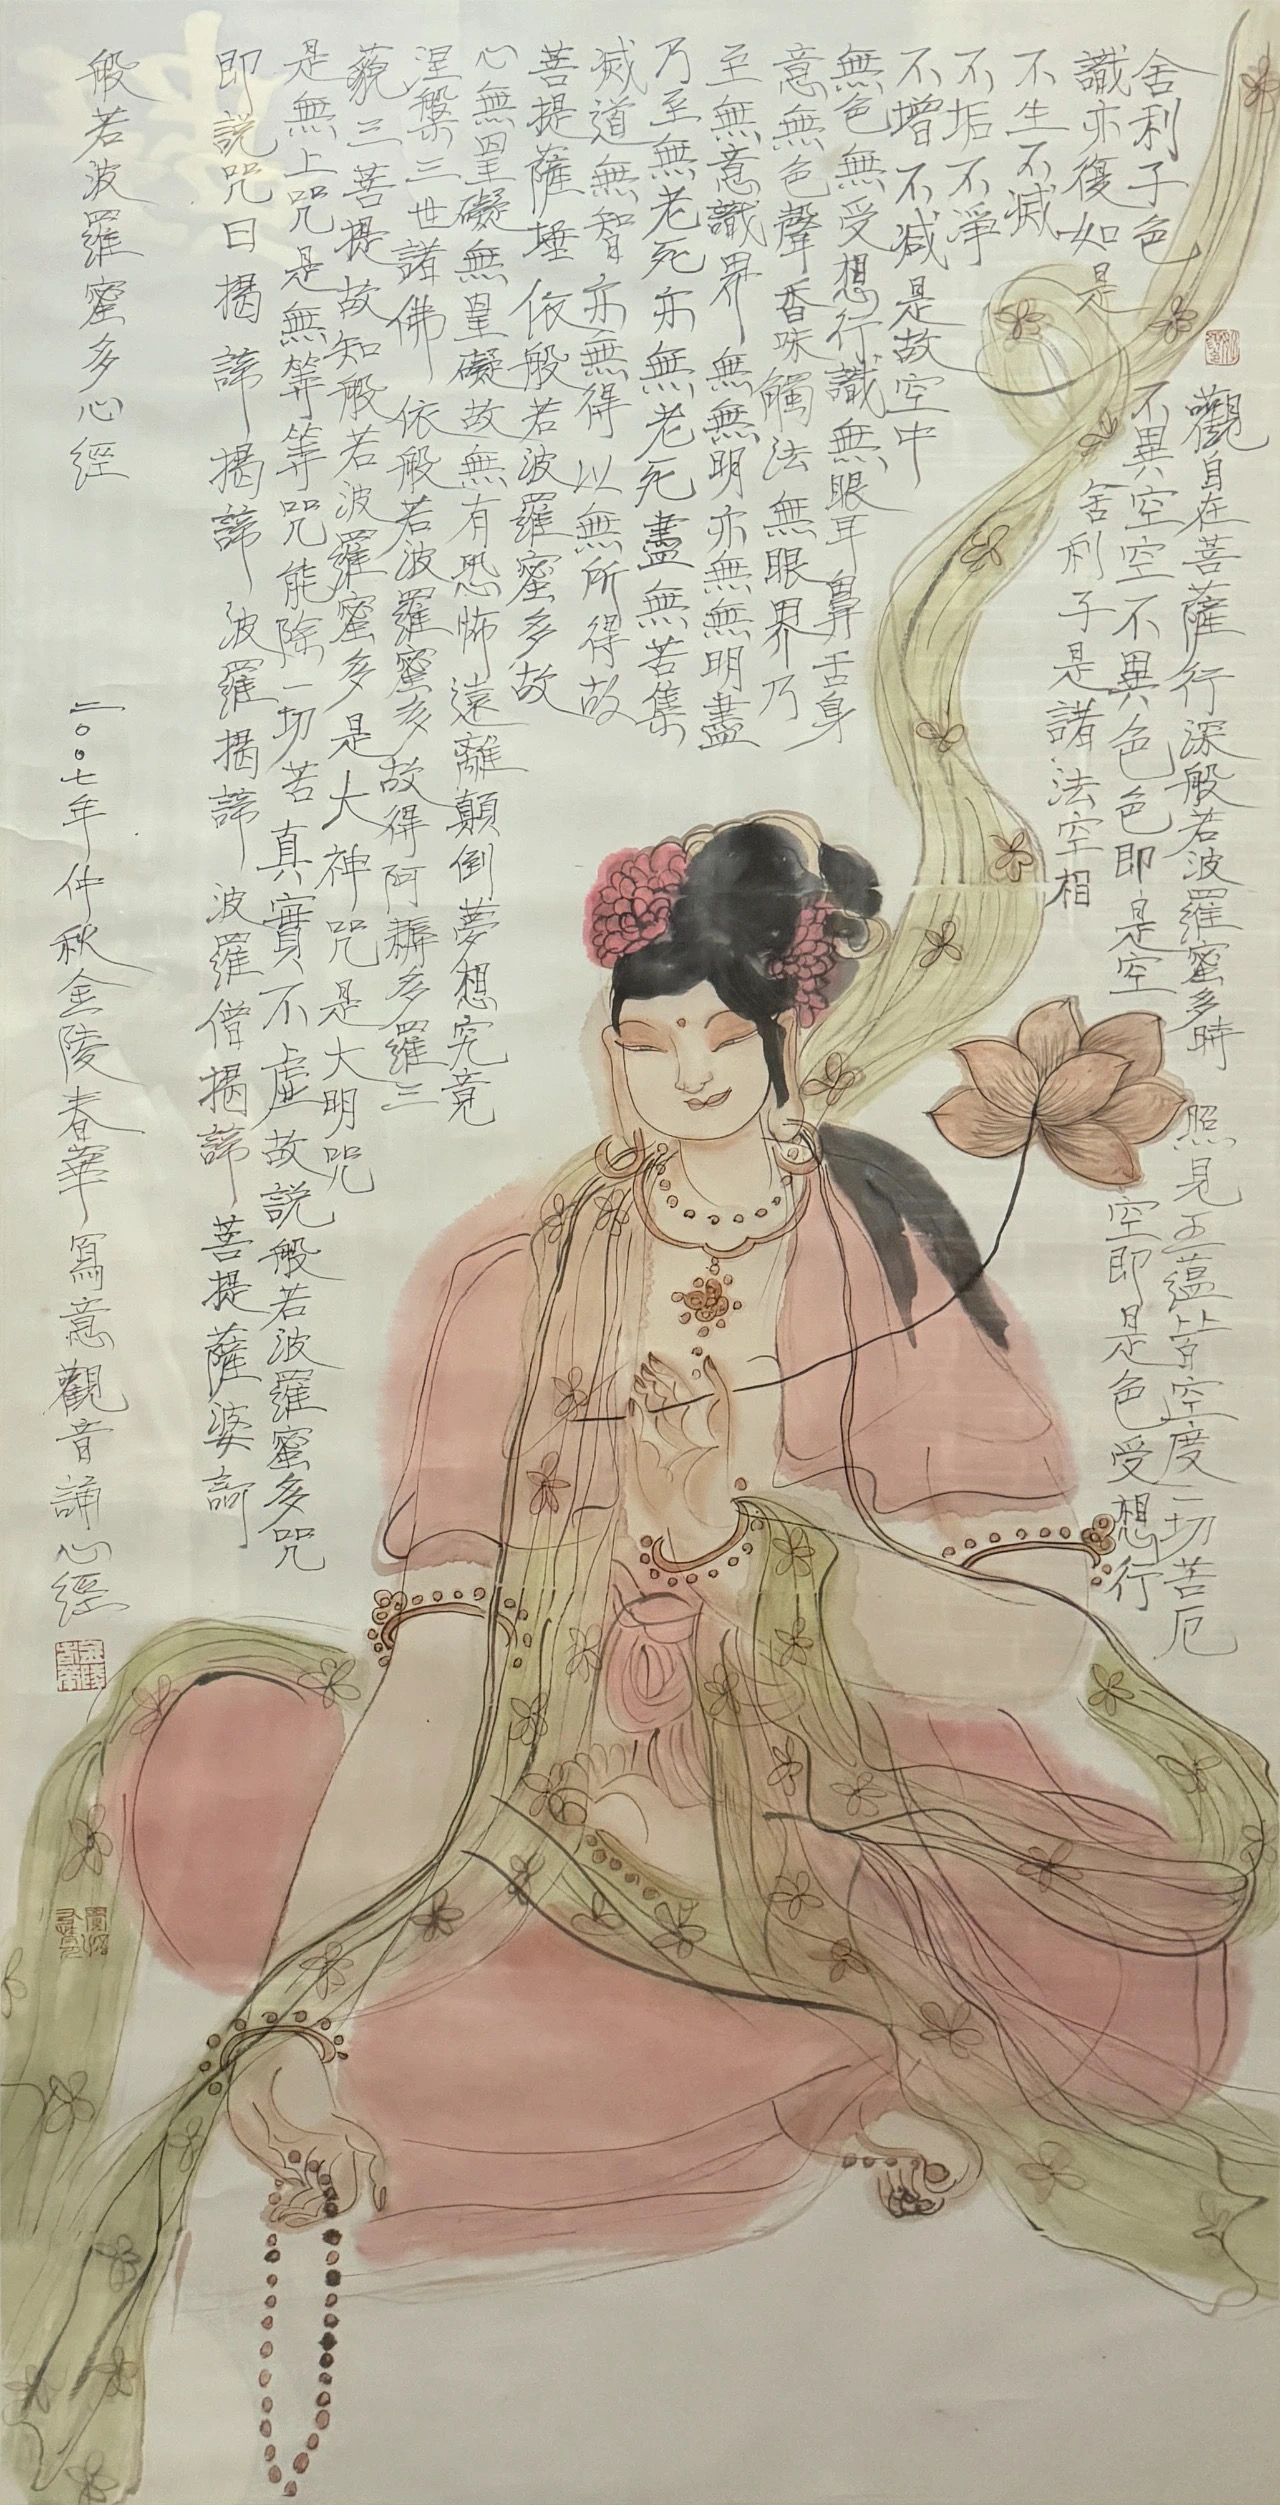 觀自在菩薩行深般若波羅蜜多時 照見五蘊皆空度一切苦厄
舍利子色 不異空空不異色色即是空 空即是色受想行
識亦復如是 舍利子是諸法空相
不生不滅
不垢不淨
不增不減是故空中
無色無受想行識無眼耳鼻舌身
意無色聲香味觸法無眼界乃
至無意識界無無明亦無無明盡
乃至無老死亦無老死盡無苦集
滅道無智亦無得 以無所得故
菩提薩埵 依般若波羅蜜多故
心無罣礙無罣礙故無有恐怖遠離顛倒夢想究竟
涅槃三世諸佛 依般若波羅蜜多故得阿耨多羅三
藐三菩提故知般若波羅蜜多是大神咒是大明咒
是無上咒是無等等咒能除一切苦真實不虛故説般若波羅蜜多咒
即說咒曰揭諦揭諦 波羅揭諦 波羅僧揭諦 菩提薩婆訶
般若波羅蜜多心經 二〇〇七年仲秋金陵春華寫意觀音誦心經